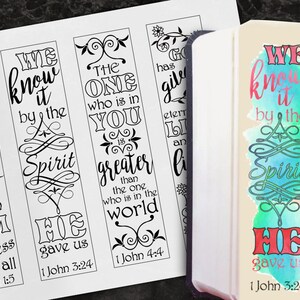 ss
all
1:5
WE
know
it
by the
Spirit
HE
gave us
1 John 3:24
THE
ONE
who is in
YOU
is
greater
than
the one
who is in the
world
1 John 4:4
has
WE
know
it
by the
Spirit
HE
gave us
1 John 3:24